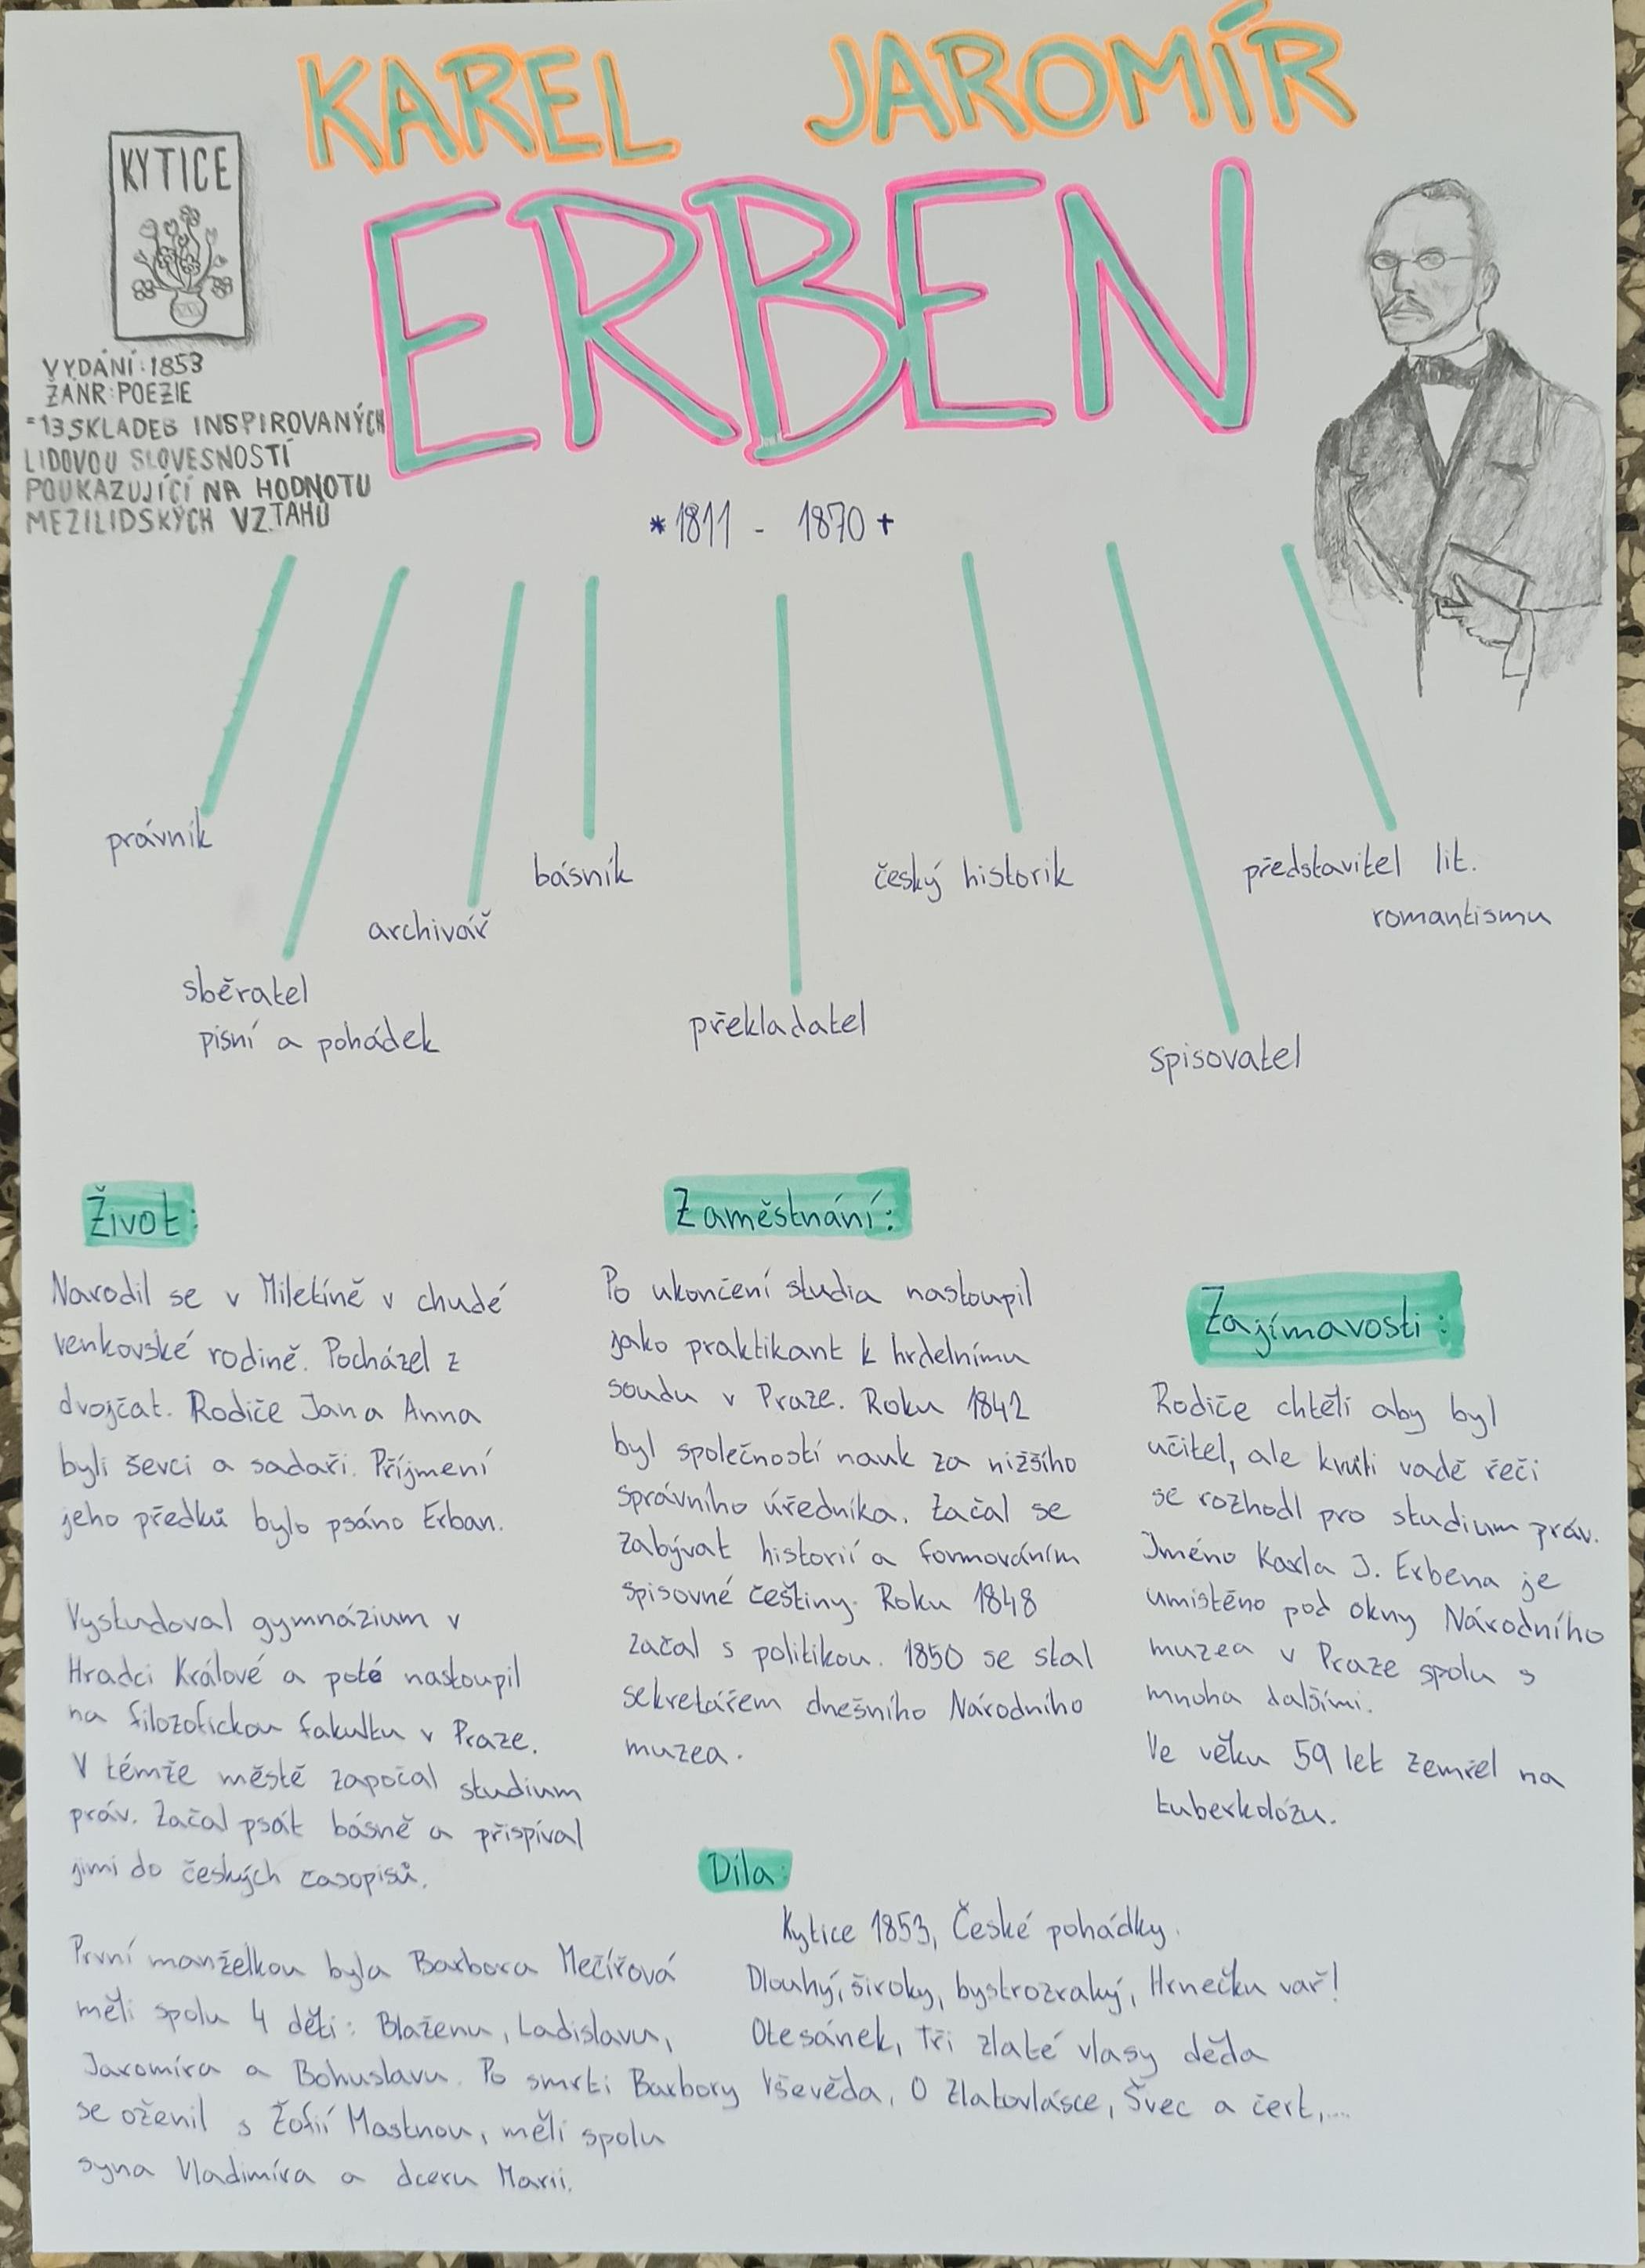 KAREL JAROMÍR
ERBEN
KYTICE
VYDÁNÍ: 1853
ŽÁNR: POEZIE
=13 SKLADEB INSPIROVANÝCH
LIDOVOU SLOVESNOSTÍ
POUKAZUJÍCÍ NA HODNOTU
MEZILIDSKÝCH VZTAHŮ
*1811 - 1870 +
právník
sběratel
písní a pohádek
archivář
básník
překladatel
český historik
spisovatel
představitel lit.
romantismu
Život:
Narodil se v Miletíně v chudé
venkovské rodině. Pocházel z
dvojčat. Rodiče Jan a Anna
byli ševci a sadaři. Příjmení
jeho předků bylo psáno Erban.
Vystudoval gymnázium v
Hradci Králové a poté nastoupil
na filozofickou fakultu v Praze.
V témže městě započal studium
práv. Začal psát básně a přispíval
jimi do českých časopisů.
První manželkou byla Barbora Mečířová
měli spolu 4 děti: Blaženu, Ladislavu,
Jaromíra a Bohuslavu. Po smrti Barbory
se oženil s Žofií Mastnou, měli spolu
syna Vladimíra a dceru Marii.
Zaměstnání:
Po ukončení studia nastoupil
jako praktikant k hrdelnímu
soudu v Praze. Roku 1842
byl společností nauk za nižšího
správního úředníka. Začal se
zabývat historií a formováním
spisovné češtiny. Roku 1848
začal s politikou. 1850 se stal
sekretářem dnešního Národního
muzea.
Zajímavosti:
Rodiče chtěli aby byl
učitel, ale kvůli vadě řeči
se rozhodl pro studium práv.
Jméno Karla J. Erbena je
umístěno pod okny Národního
muzea v Praze spolu s
mnoha dalšími.
Ve věku 59 let zemřel na
tuberkolózu.
Díla:
Kytice 1853, České pohádky.
Dlouhý, široky, bystrozraký, Hrnečku vař!
Otesánek, Tři zlaté vlasy děda
Vševěda, O Zlatovlásce, Švec a čert,...